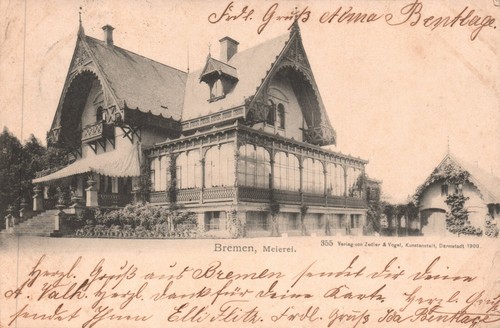 Frdl. Gruß Alma Bentlage.
Bremen, Meierei.
355 Verlag von Zedler & Vogel, Kunstanstalt, Darmstadt 1900.
Herzl. Gruß aus Bremen sendet dir deine
A. Kath. Herzl. Dank für deine Karte. Herzl. Gruß
sendet Ihnen Elli Frdl. Gruß Ida Bentlage